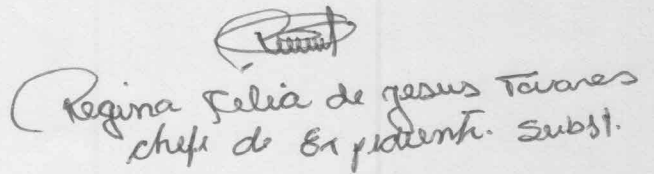 Regina Célia de Jesus Tavares
chefe de Expediente. Subst.